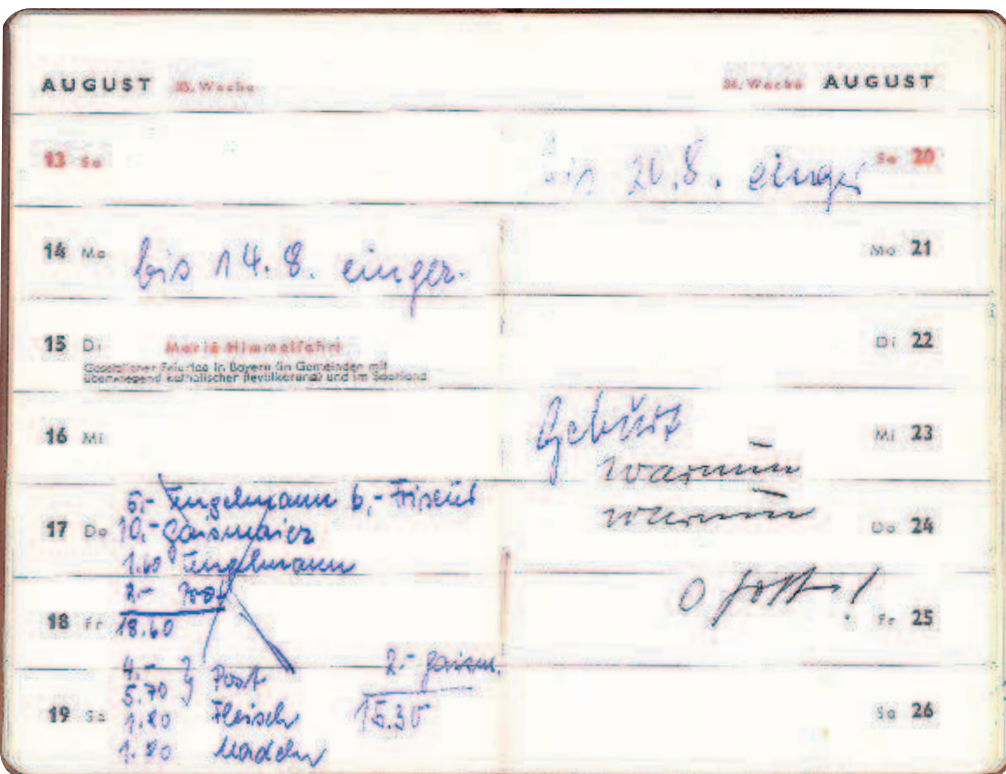 AUGUST 33. Woche
13 So
14 Mo bis 14.8. einger.
15 Di Mariä Himmelfahrt
Gesetzlicher Feiertag in Bayern (in Gemeinden mit
überwiegend katholischer Bevölkerung) und im Saarland
16 Mi
5,- Tengelmann 6,- Friseur
17 Do 10,- Gaismaier
1.60 Tengelmann
2,- Post
18 Fr 18.60
4.- } Post 2,- Gaism.
5.70
19 Sa 1.80 Fleisch 15.30
1.80 Nudeln
34. Woche AUGUST
bis 20.8. einger So 20
Mo 21
Di 22
Geburt Mi 23
warum
warum Do 24
O Gott! Fr 25
Sa 26